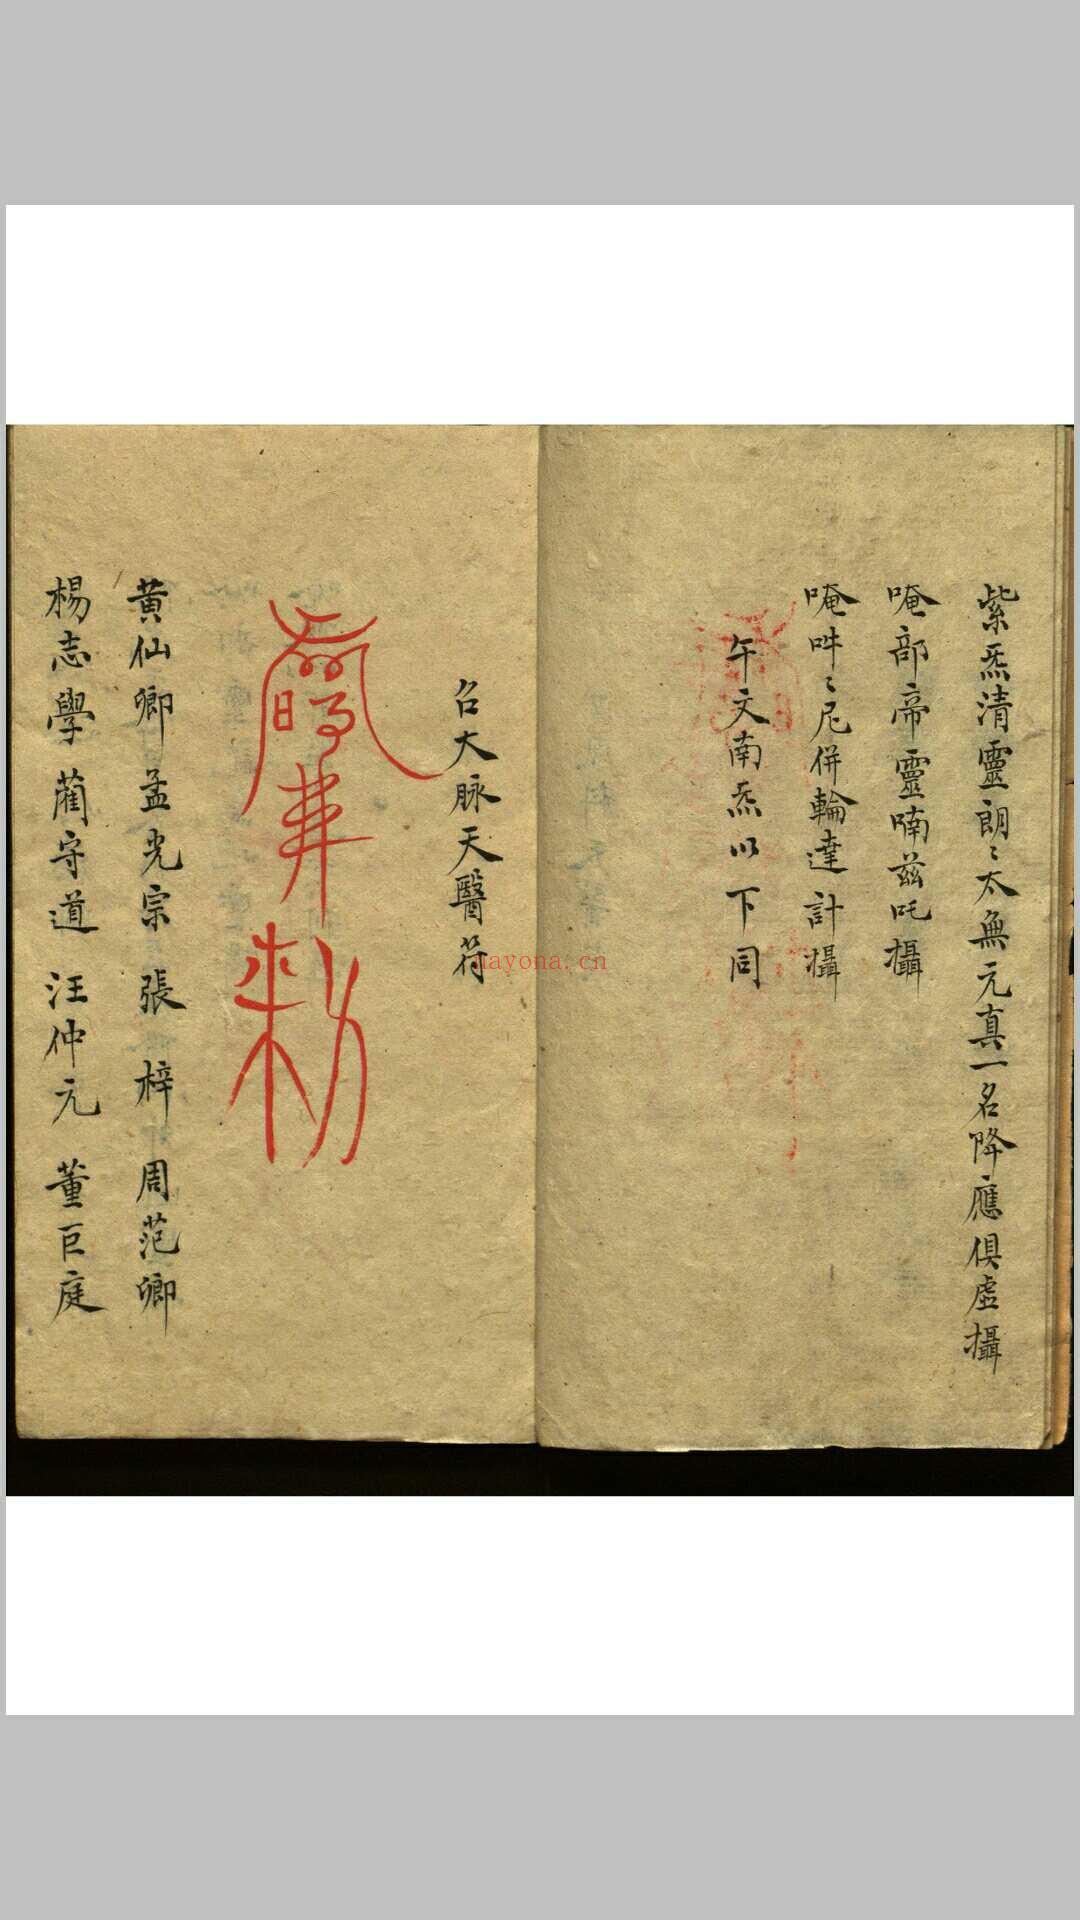 紫炁清靈朗〻太無元真一名降應俱虛攝
唵部帝靈喃茲吒攝
唵吽〻尼併輪達計攝
午文南炁以下同
召大脉天醫符
敕
黃仙卿 孟光宗 張梓 周范卿
楊志學 藺守道 汪仲元 董巨庭
nayona.cn